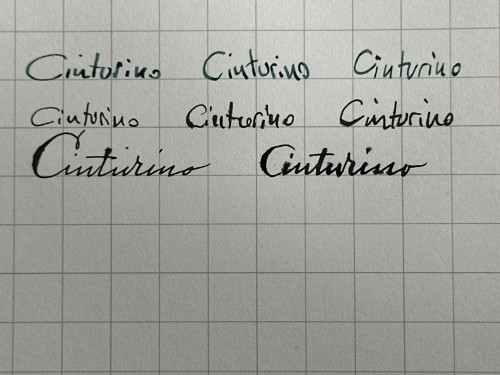 Cinturino Cinturino Cinturino
Cinturino Cinturino Cinturino
Cinturino Cinturino